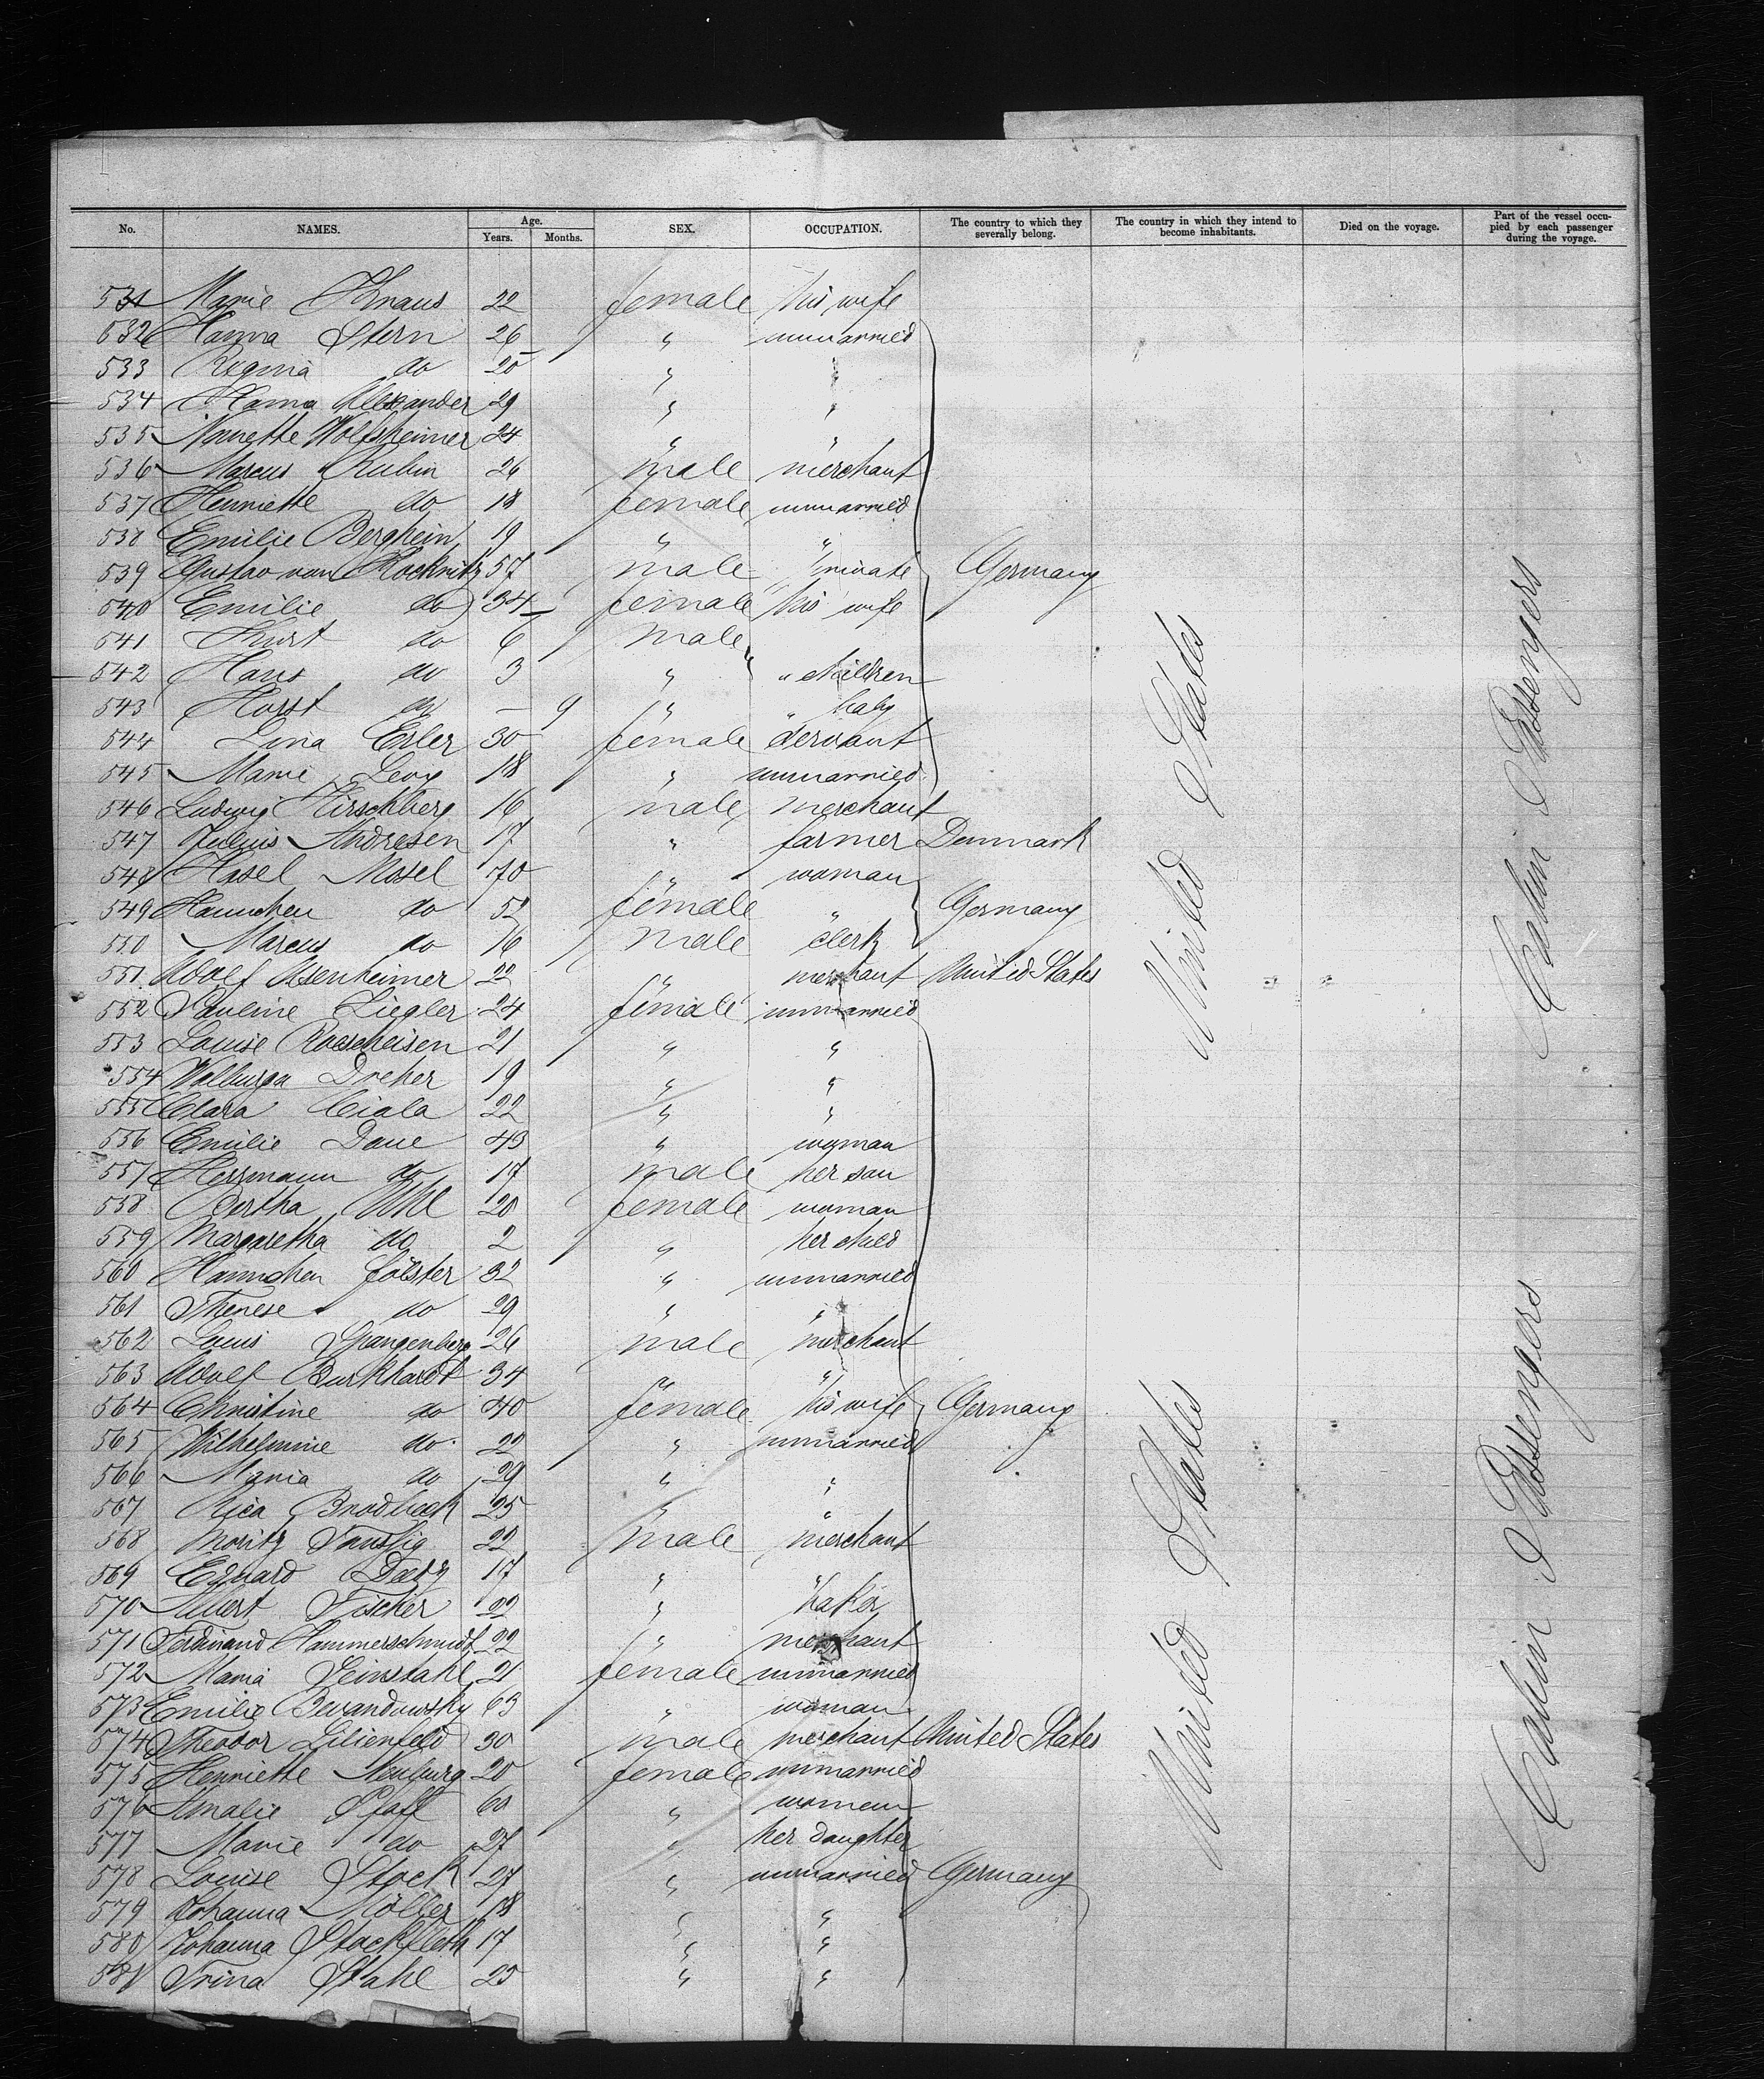 No. NAMES. Age. Years. Months. SEX. OCCUPATION. The country to which they severally belong. The country in which they intend to become inhabitants. Died on the voyage. Part of the vessel occupied by each passenger during the voyage.
531 Marie Knaus 22 female his wife
532 Hanna Stern 26 " unmarried
533 Regina do 20 " "
534 Hanna Alexander 29 " "
535 Nanette Wolfsheimer 24 " "
536 Marcus Rubin 26 male merchant
537 Henriette do 18 female unmarried
538 Emilie Berghein 19 " "
539 Gustav van Kocknitz 57 male private Germany
540 Emilie do 34 female his wife
541 Kurt do 6 male
542 Hans do 3 " " children
543 Horst do — 9 " " baby
544 Lina Erler 30 female servant
545 Marie Levy 18 " unmarried
546 Ludwig Hirschberg 16 male merchant
547 Julius Andresen 17 " farmer Denmark
548 Hasel Mosel 70 " woman
549 Hannchen do 52 female " Germany
550 Marcus do 16 male clerk
551 Adolf Isenheimer 22 " merchant United States
552 Pauline Ziegler 24 female unmarried
553 Louise Roescheisen 21 " "
554 Walburga Dreher 19 " "
555 Clara Ciala 22 " "
556 Emilie Daue 43 " woman
557 Herrmann do 17 male her son
558 Bertha Uhl 20 female woman
559 Margaretha do 2 " her child
560 Hannchen Fölster 32 " unmarried
561 Therese do 29 " "
562 Louis Spangenberg 26 male merchant
563 Adolf Burkhardt 34 " "
564 Christine do 40 female his wife Germany
565 Wilhelmine do 22 " unmarried
566 Maria do 29 " "
567 Rica Brodbeck 25 " "
568 Moritz Taussig 22 male merchant
569 Eduard 17 " "
570 Albert Fischer 22 " baker
571 Ferdinand Hammerschmidt 22 " merchant
572 Maria Feinstahl 21 female unmarried
573 Emilie 63 " woman
574 Theodor Lilienfeld 30 male merchant United States
575 Henriette Neuburg 20 female unmarried
576 Amalie Pfaff 60 " women
577 Marie do 27 " her daughter
578 Louise Stock 27 " unmarried Germany
579 Johanna Möller 18 " "
580 Johanna Stockfleth 17 " "
581 Trina Stahl 25 " "
United States
United States
Cabin Passengers
Cabin Passengers